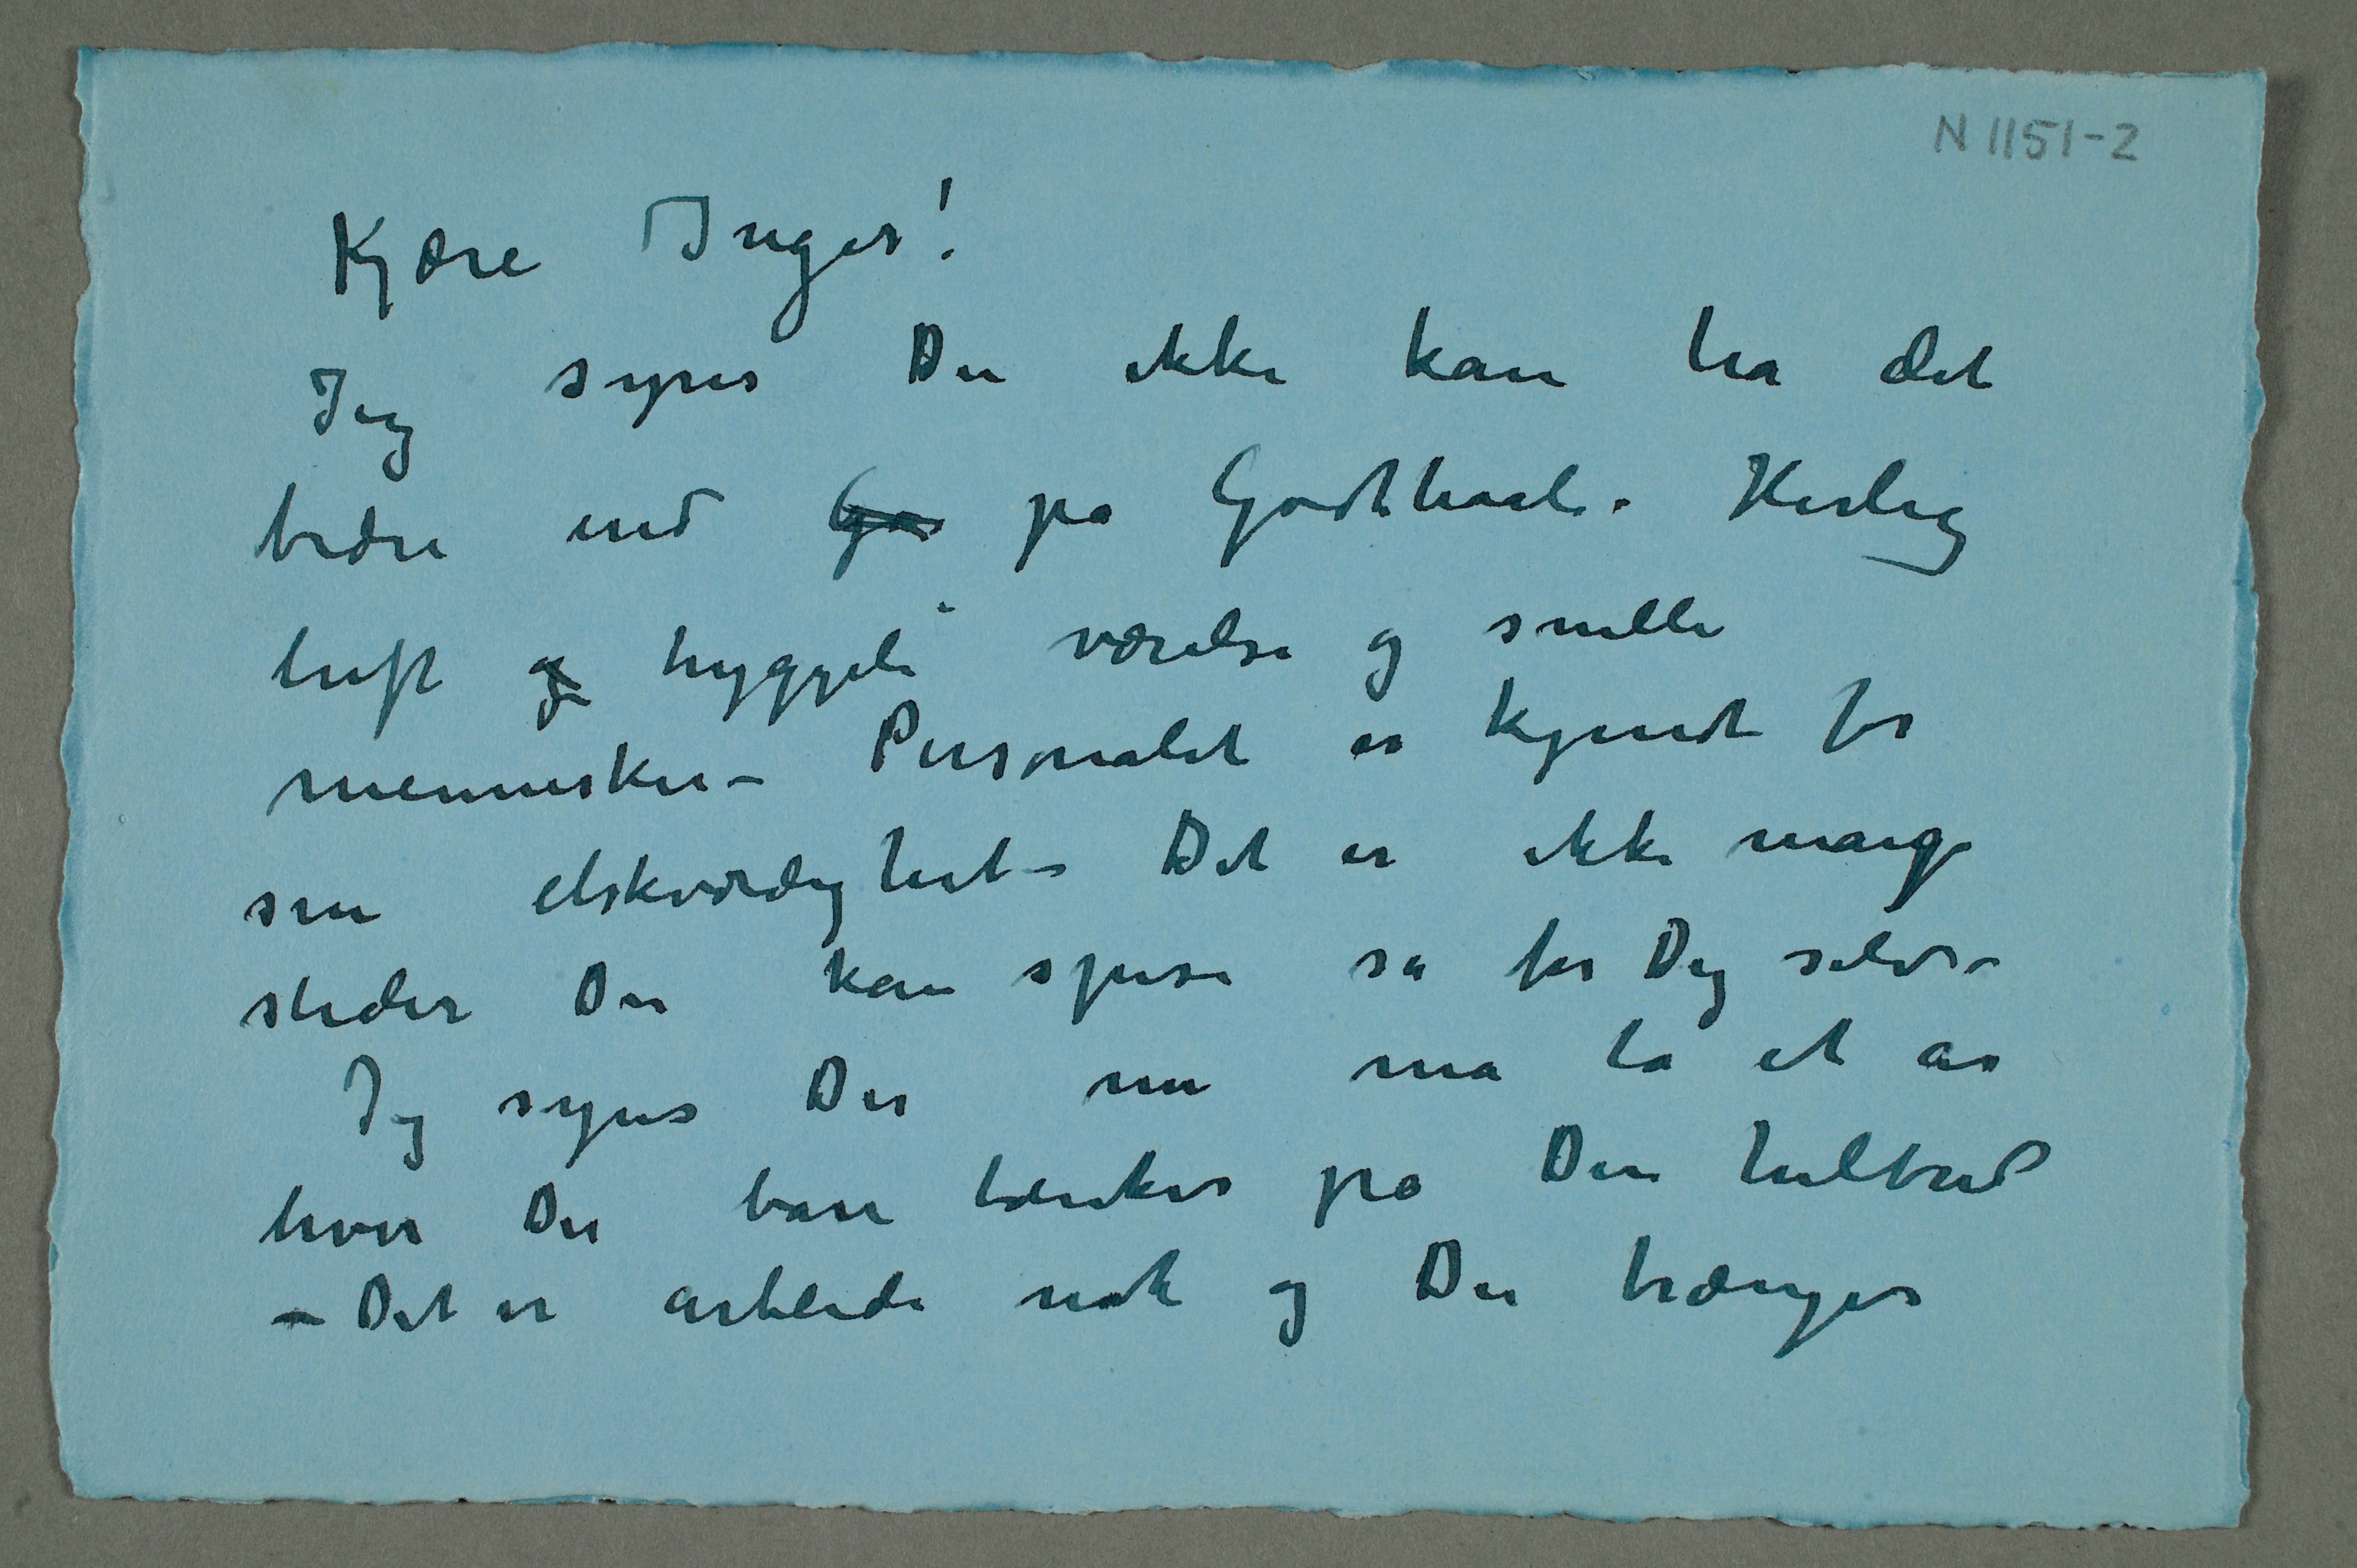 N 1151-2
Kjære Inger!
Jeg synes Du ikke kan ha det
bedre end Go på Godthaab. Herlig
luft og hyggeli værelse og snille
mennesker – Personalet er kjendt for
sin elskværdighet – Det er ikke mange
steder Du kan spise så for Dig selv –
Jeg synes Du nu må ta et år
hvor Du bare tænker på Din helbred
– Det er arbeide nok og Du trænger